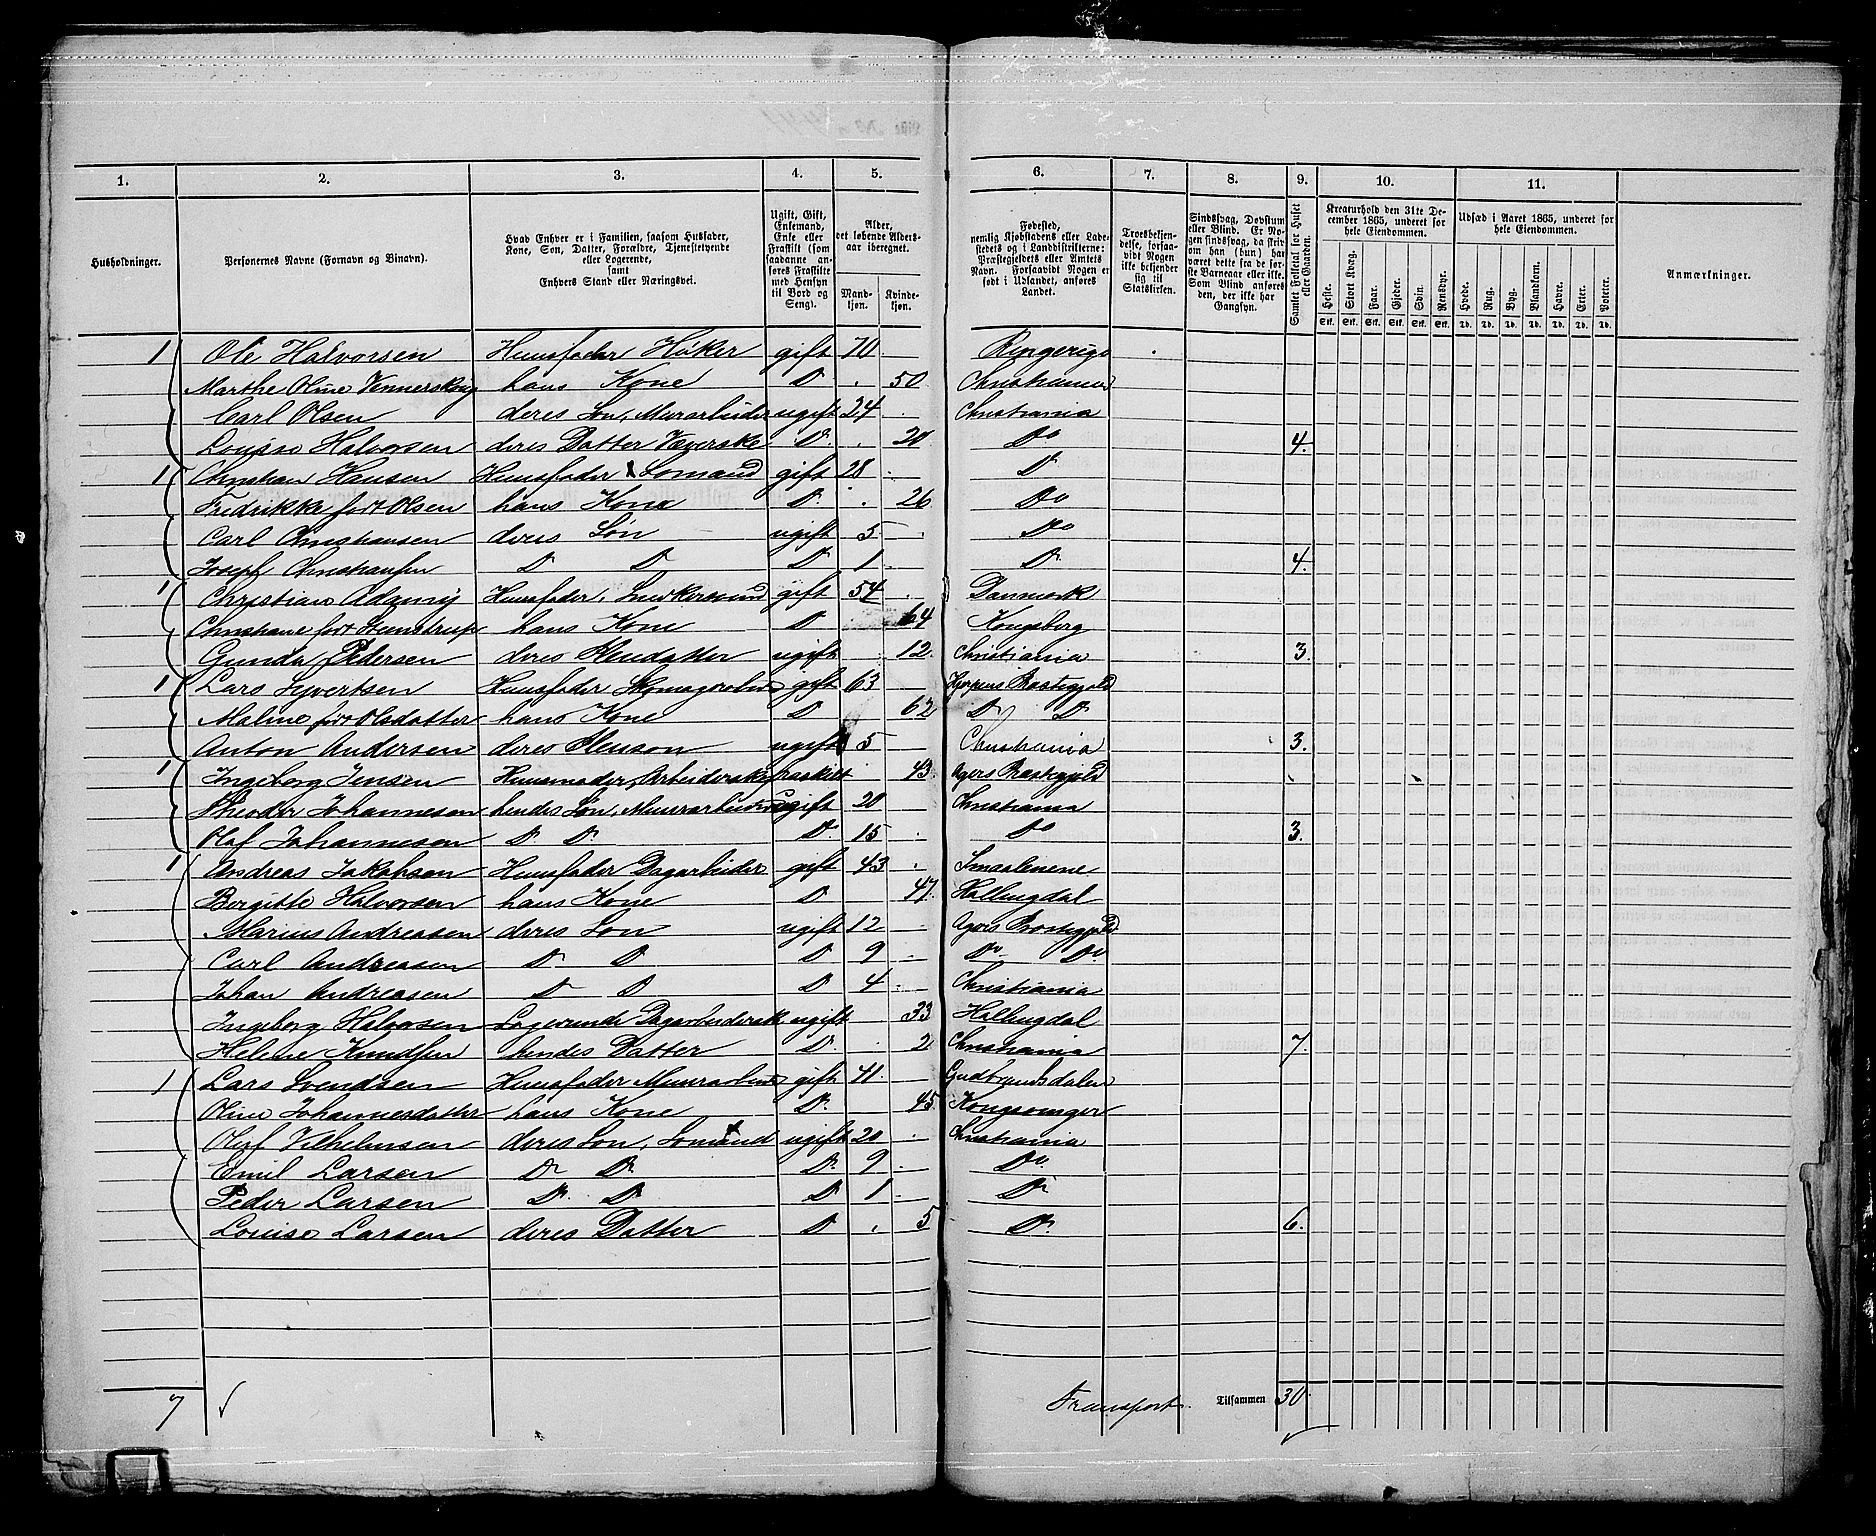 1. 2. 3. 4. 5. 6. 7. 8. 9. 10. 11.
Husholdninger.
Personernes Navne (Fornavn og Binavn).
Hvad Enhver er i Familien, saasom Husfader, Kone, Søn, Datter, Forældre, Tjenestetyende eller Logerende, samt Enhvers Stand eller Næringsvei.
Ugift, Gift, Enkemand, Enke eller Fraskilt (som saadanne anføres Fraskilte med Hensyn til Bord og Seng).
Alder, det løbende Aldersaar iberegnet.
Mandkjøn. Kvindekjøn.
Fødested, nemlig Kjøbstadens eller Ladestedets og i Landdistrikterne: Præstegjeldets eller Amtets Navn. Forsaavidt Nogen er født i Udlandet, anføres Landet.
Troesbekjendelse, forsaavidt Nogen ikke bekjender sig til Statskirken.
Sindssvag, Døvstum eller Blind. Er Nogen sindssvag, da skrives om han (hun) har været dette fra de første Barneaar eller ikke. Som Blind anføres den, der ikke har Gangsyn.
Samlet Folketal for Huset eller Gaarden.
Kreaturhold den 31te December 1865, underet for hele Eiendommen.
Heste. Stort Kvæg. Faar. Gjeder. Svin. Rensdyr.
Udsæd i Aaret 1865, underet for hele Eiendommen.
Hvede. Rug. Byg. Blandkorn. Havre. Erter. Poteter.
Anmærkninger.
Stk. Stk. Stk. Stk. Stk. Stk. Td. Td. Td. Td. Td. Td. Td.
1 Ole Halvorsen Huusfader Høker gift 70 Ringerige
Marthe Oline Vennerskoug hans Kone D. 50 Christiania
Carl Olsen deres Søn, Murarbeider ugift 24 Christiania
Louise Halvorsen deres Datter Væverske D. 20 Do 4.
1 Christian Hansen Huusfader Somand gift 28 D.
Fredrikke født Olsen hans Kone D. 26 Do
Carl Christiansen deres Søn ugift 5 Do
Josepf Christiansen D D D 1 D. 4.
1 Christian Adamy Huusfader, Snedkersvend gift 54 Danmark
Christiane født Stenstrup hans Kone D 64 Kongsberg
Gunda Pedersen deres Pleiedatter ugift 12 Christiania 3.
1 Lars Syvertsen Huusfader Skomagerarbeid gift 63 Gjerpens Prestegjeld
Maline født Olsdatter hans Kone D 62 D D
Anton Andersen deres Pleiesøn ugift 5 Christiania 3.
1 Ingeborg Jensen Huusmoder, Arbeiderske fraskilt 43 Agers Prestegjeld
Theodor Johannesen hendes Søn, Murarbeider ugift 20 Christiania
Olaf Johannesen D. D. D. 15 Do 3.
1 Andreas Jakobsen Huusfader Dagarbeider gift 43 Smaalenene
Birgitte Halvorsen hans Kone D 47 Hallingdal
Marius Andreasen deres Søn ugift 12 Agers Prestegjeld
Carl Andreasen D. D D 9 Do Do
Johan Andreasen D D D 4 Christiania
Ingeborg Halvorsen Logerende Dagarbeidersk ugift 33 Hallingdal
Helene Knudsen hendes Datter D. 2 Christiania 7.
1 Lars Svendsen Huusfader Murarbeid gift 41. Gudbrandsdalen
Oline Johannesdatter hans Kone D. 45 Kongsvinger
Olaf Vilhelmsen deres Søn, Somand ugift 20 Christiania
Emil Larsen D D. D. 9 Do
Peder Larsen D. D D 1 D.
Louise Larsen deres Datter D 5 D. 6.
7 Transport. Tilsammen 30.